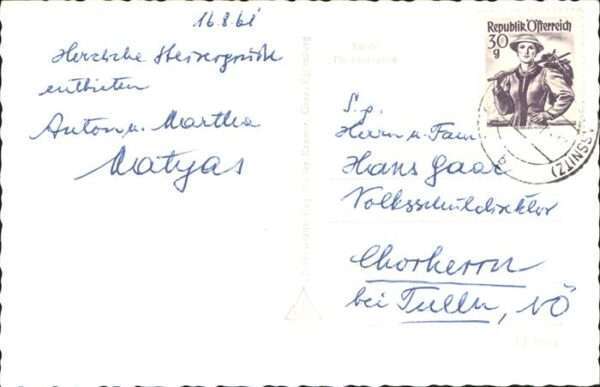 16.8.61
Herzliche Steirergrüße
entbieten
Anton u. Martha
Matyas
Republik Österreich
30
g
S.g.
Herrn u. Fam.
Hans Gaar
Volksschuldirektor
Chorherrn
bei Tulln, NÖ
SSNITZ)